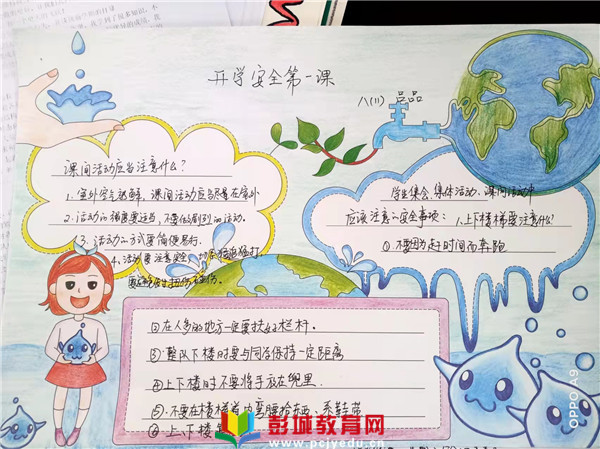 开学安全第一课
八(11) 吕品
课间活动应当注意什么?
1.室外空气新鲜,课间活动应当尽量在室外
2.活动的强度要适当,不要做剧烈的活动.
3.活动的方式要简便易行.
4.活动要注意安全,切忌猛追猛打
要避免发生扭伤、碰伤.
学生集会、集体活动、课间活动中
应该注意的安全事项:1.上下楼梯要注意什么?
①不要因为赶时间而奔跑
②在人多的地方一定要扶好栏杆。
③整队下楼时要与同学保持一定距离
④上下楼时不要将手放在兜里.
⑤不要在楼梯道内弯腰拾东西、系鞋带
⑥上、下楼
彭城教育网
www.pcjyedu.cn
OPPO A9